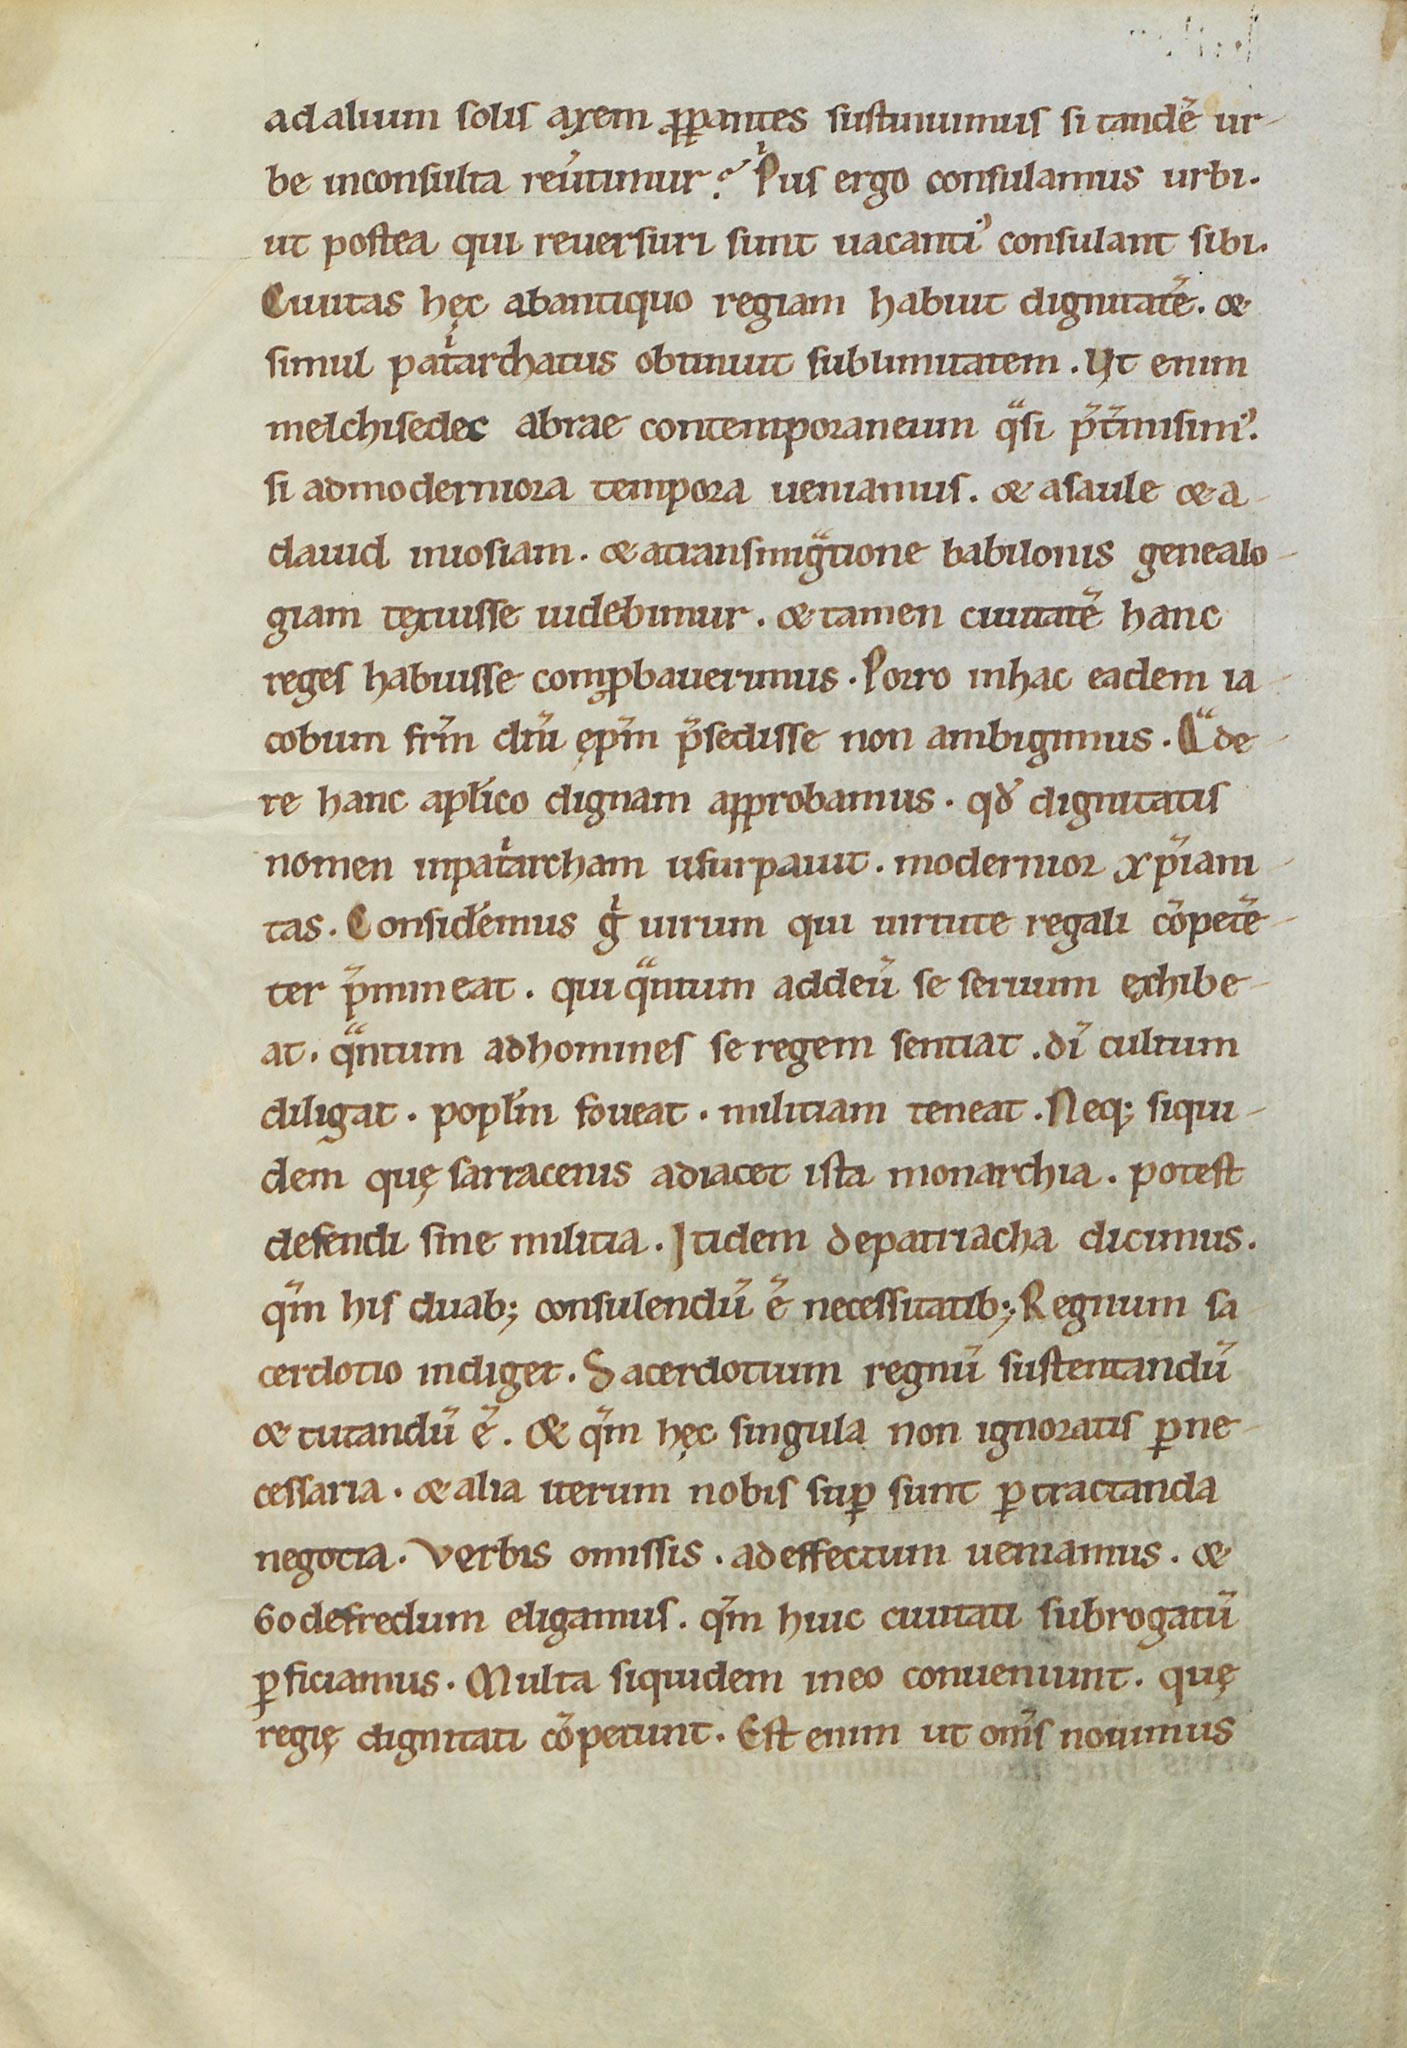 ad alium solis axem ꝓꝑantes sustinuimus si tandē ur-
be inconsulta reúitimur? Pⁱus ergo consulamus urbi.
ut postea qui reuersuri sunt uacantiꝰ consulant sibi.
Ciuitas hęc abantiquo regiam habuit dignitatē. &
simul patⁱarchatus obtinuit sublimitatem. Ut enim
melchisedec abrae contemporaneum qᵃsi p̄t̄misimꝰ.
si ad moderniora tempora ueniamus. & asaule & a-
dauid iniosiam. & atransmigᵃtione babilonis genealo-
giam texuisse uidebimur. & tamen ciuitatē hanc
reges habuisse comꝓbauerimus. Porro inhac eadem ia-
cobum fr̄m dn̄i ępm̄ p̄sedisse non ambigimus. Qᵃ de-
re hanc apl̄ico dignam approbamus. qd̄ dignitatis
nomen inpatⁱarcham usurpauit. modernior xp̄iani-
tas. Consid̄emus gⁱ uirum qui uirtute regali cōpetē-
ter p̄mineat. qui qᵃntum addeū se seruum exhibe-
at. qᵃntum adhomines se regem sentiat. dī cultum
diligat. popl̄m foueat. militiam teneat. Neq; siqui-
dem quę sarracenis adiacet ista monarchia. potest
defendi sine militia. Itidem depatriacha dicimus.
qm̄ his duab; consulendū ē necessitatib; Regnum sa-
cerdotio indiget. Sacerdotium regnū sustentandū
& tutandū ē. & qm̄ hęc singula non ignoratis ꝑne-
cessaria. & alia iterum nobis suꝑ sunt ꝑtractanda
negotia. Verbis omissis. adeffectum ueniamus. &
Godefredum eligamus. qm̄ huic ciuitati subrogatū
ꝑficiamus. Multa siquidem ineo conueniunt. quę
regię dignitati cōpetunt. Est enim ut om̄s nouimus